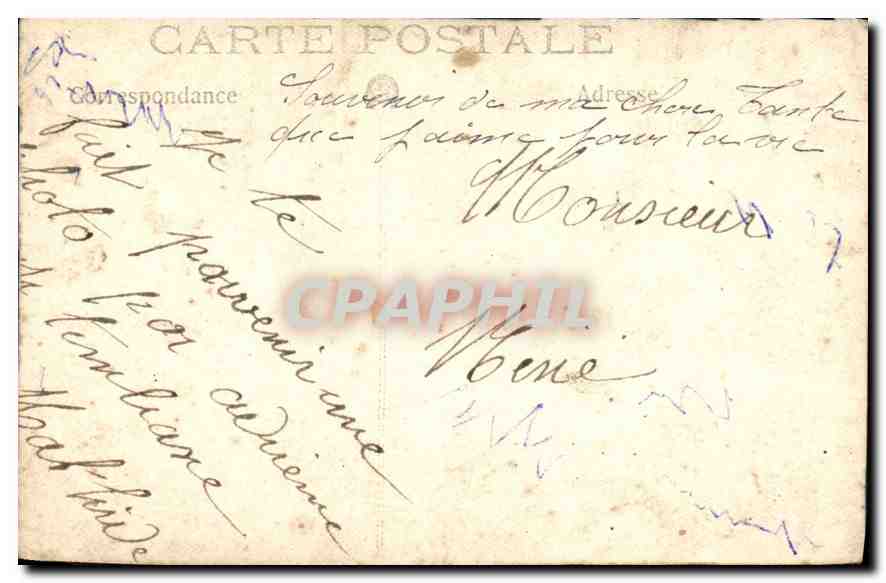 CARTE POSTALE
Correspondance
Adresse
Souvenir de ma chere Tante
que j'aime pour la vie
Monsieur
René
Je te
fait parvenir une
photo par adrienne
Mathilde
CPAPHIL